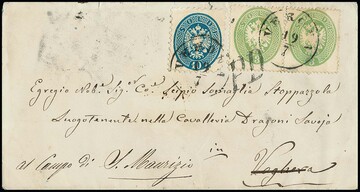 VERONA
19
7
PD
Egregio Nob. Sig. Co. Scipio Somaglia Stoppazzola
Luogotenente nella Cavalleria Dragoni Savoja
in
al Campo di S. Maurizio Voghera